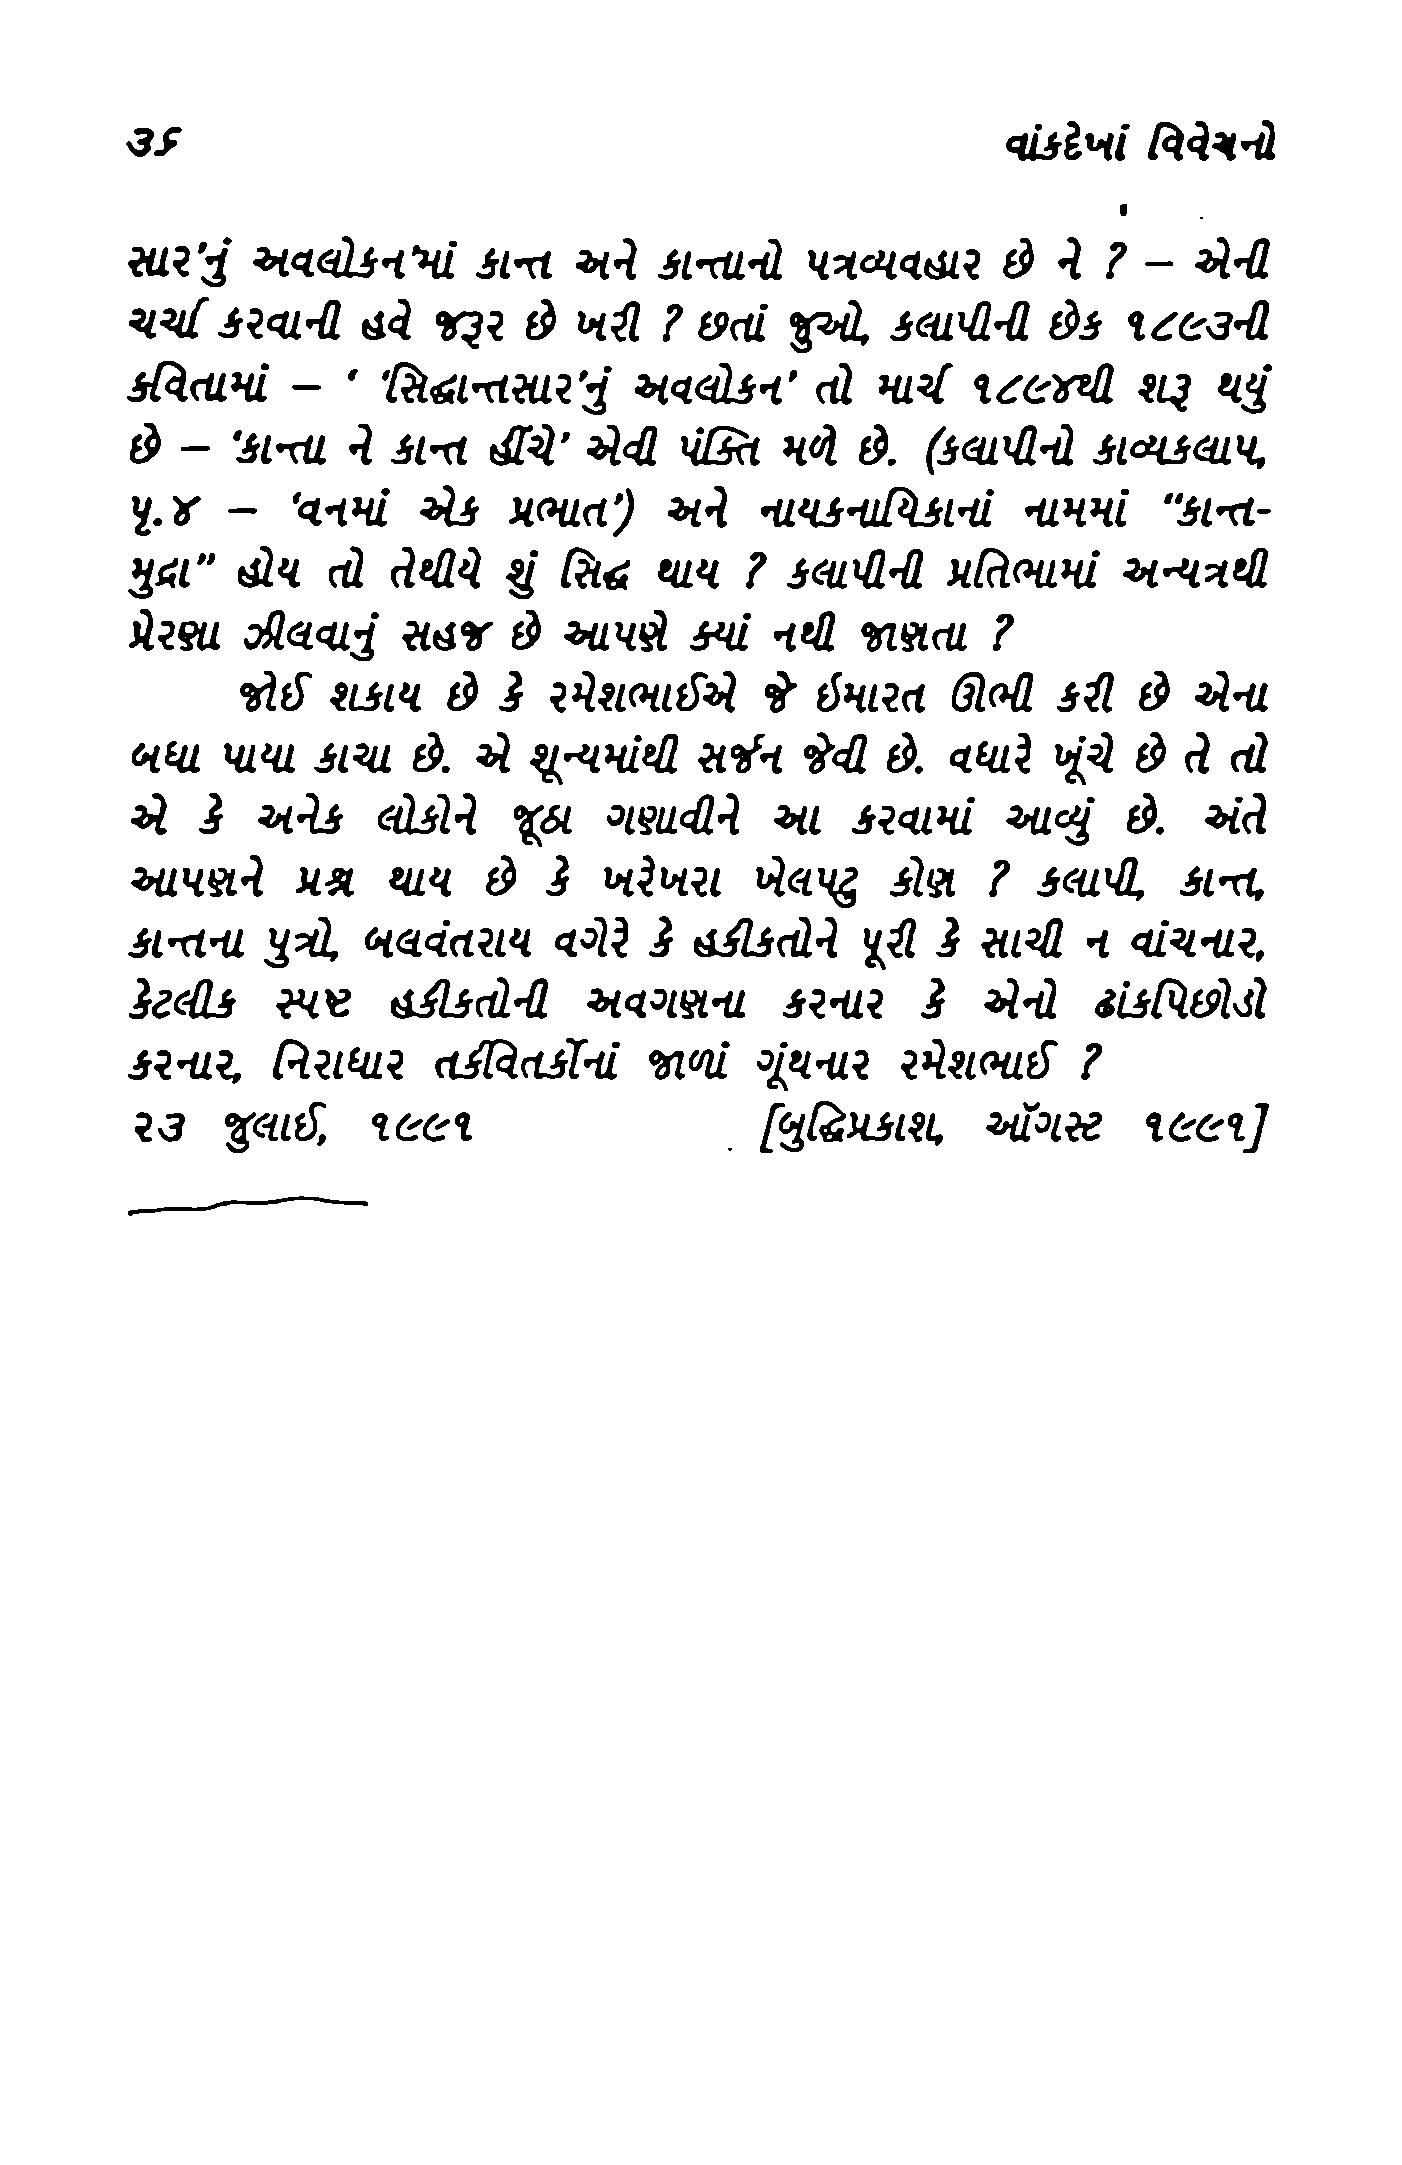 ૩૬ વાંકદેખાં વિવેચનો
સાર'નું અવલોકન'માં કાન્ત અને કાન્તાનો પત્રવ્યવહાર છે ને ? – એની
ચર્ચા કરવાની હવે જરૂર છે ખરી ? છતાં જુઓ, કલાપીની છેક ૧૮૯૩ની
કવિતામાં – ‘ ‘સિદ્ધાન્તસાર'નું અવલોકન' તો માર્ચ ૧૮૯૪થી શરૂ થયું
છે – ‘કાન્તા ને કાન્ત હીંચે' એવી પંક્તિ મળે છે. (કલાપીનો કાવ્યકલાપ,
પૃ.૪ – ‘વનમાં એક પ્રભાત') અને નાયકનાયિકાનાં નામમાં “કાન્ત-
મુદ્રા” હોય તો તેથીયે શું સિદ્ધ થાય ? કલાપીની પ્રતિભામાં અન્યત્રથી
પ્રેરણા ઝીલવાનું સહજ છે આપણે ક્યાં નથી જાણતા ?
જોઈ શકાય છે કે રમેશભાઈએ જે ઇમારત ઊભી કરી છે એના
બધા પાયા કાચા છે. એ શૂન્યમાંથી સર્જન જેવી છે. વધારે ખૂંચે છે તે તો
એ કે અનેક લોકોને જૂઠા ગણાવીને આ કરવામાં આવ્યું છે. અંતે
આપણને પ્રશ્ન થાય છે કે ખરેખરા ખેલપટુ કોણ ? કલાપી, કાન્ત,
કાન્તના પુત્રો, બલવંતરાય વગેરે કે હકીકતોને પૂરી કે સાચી ન વાંચનાર,
કેટલીક સ્પષ્ટ હકીકતોની અવગણના કરનાર કે એનો ઢાંકપિછોડો
કરનાર, નિરાધાર તર્કવિતર્કોનાં જાળાં ગૂંથનાર રમેશભાઈ ?
૨૩ જુલાઈ, ૧૯૯૧ [બુદ્ધિપ્રકાશ, ઑગસ્ટ ૧૯૯૧]